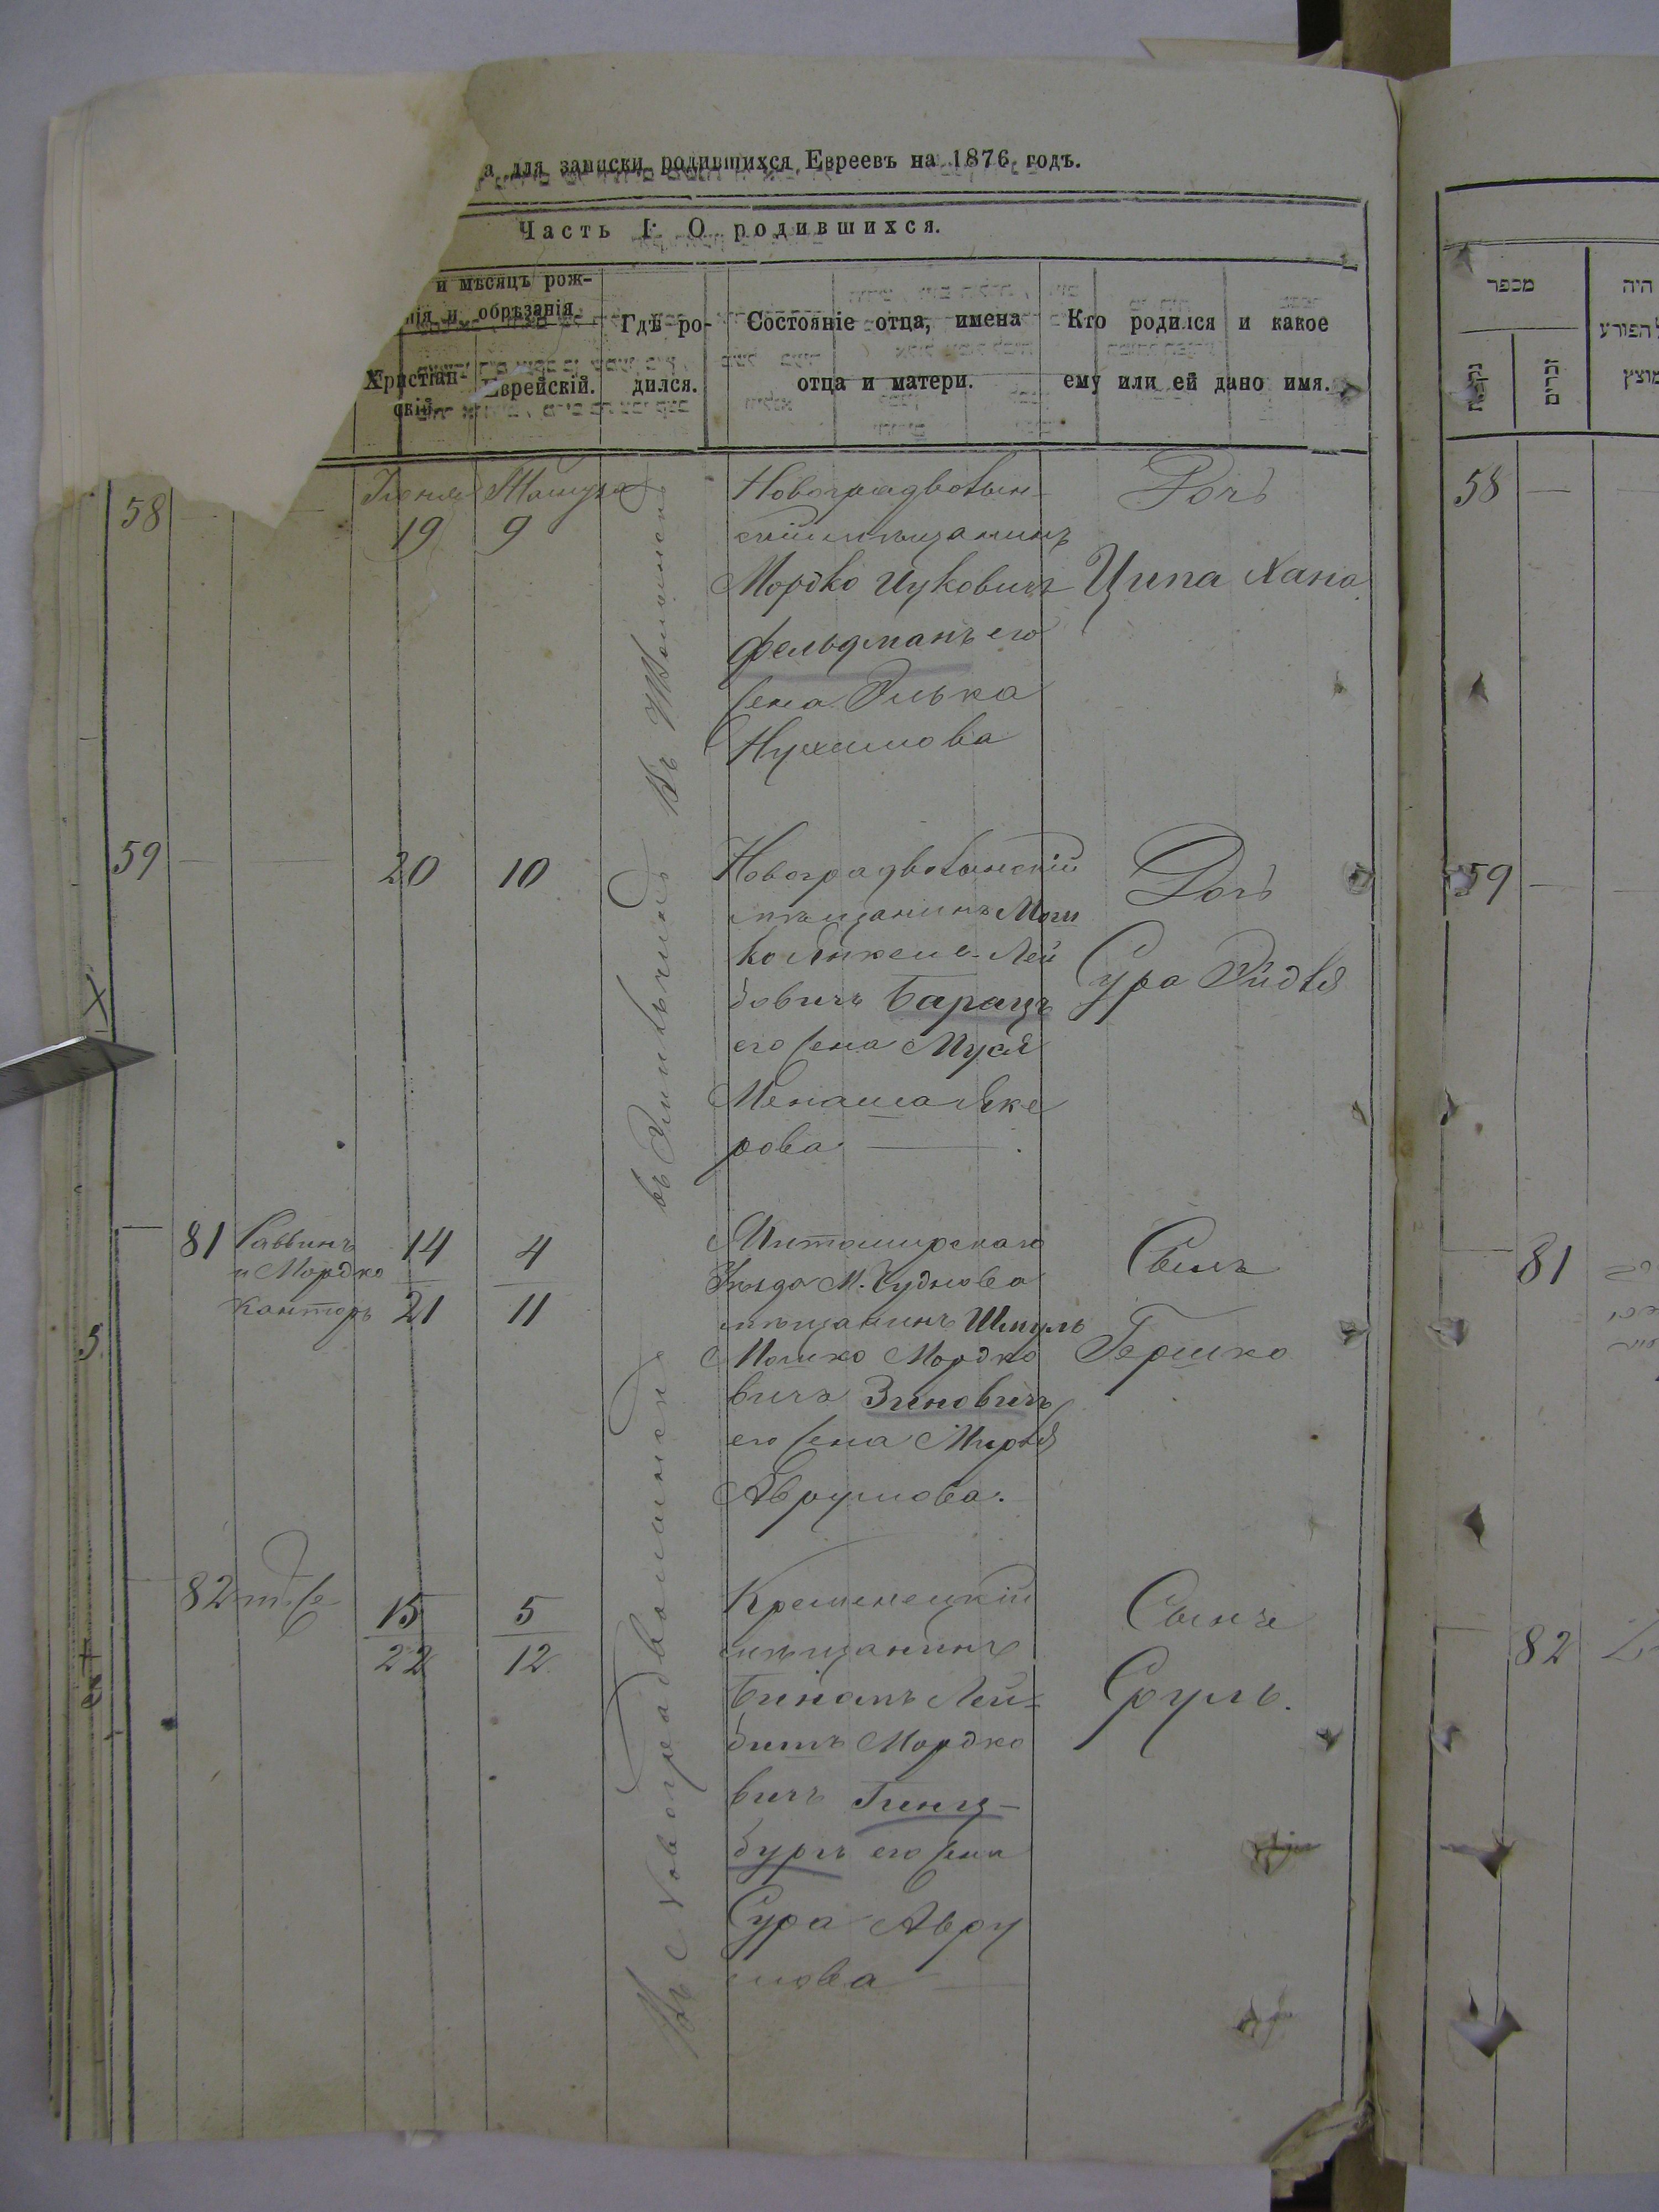 а для записки родившихся Евреевъ на 1876 годъ.
Часть I. О родившихся.
и мѣсяцъ рож-
нія и обрѣзанія.
Христіан-
скій.
Еврейскій.
Гдѣ ро-
дился.
Состояніе отца, имена
отца и матери.
Кто родился и какое
ему или ей дано имя.
58
Іюня
19
Тамуза
9
Новоградволын-
скій мѣщанинъ
Мордко Ицковичъ
Фельдманъ его
жена Элька
Нухимова
Дочь
Ципа Хана
59
20
10
Новоградволынскій
мѣщанинъ Мош
ко Янкель Лей
бовичъ Барацъ
его жена Муся
Менаша Янке
рова
Дочь
Сура Эйдля
81
Раввинъ
и Мордко
Канторъ
14
21
4
11
Житомирскаго
Уѣзда М. Чуднова
мѣщанинъ Шмуль
Мошко Мордко
вичъ Зиновичъ
его жена Мирля
Аврумова.
Сынъ
Гершко
82
т. же
15
22
5
12
Кременецкій
мѣщанинъ
Биномъ Лей-
бишъ Мордко
вичъ Гинц-
бургъ его жена
Сура Авру
мова
Сынъ
Сруль.
Въ Новоградволынскѣ
въ Эмильчинѣ
מספר
נקבות
זכרים
היה
הפורע
מוצץ
58
59
81
82